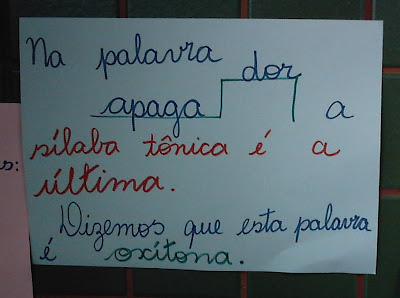 Na palavra
apagador a
sílaba tônica é a
última.
Dizemos que esta palavra
é oxítona.
s: